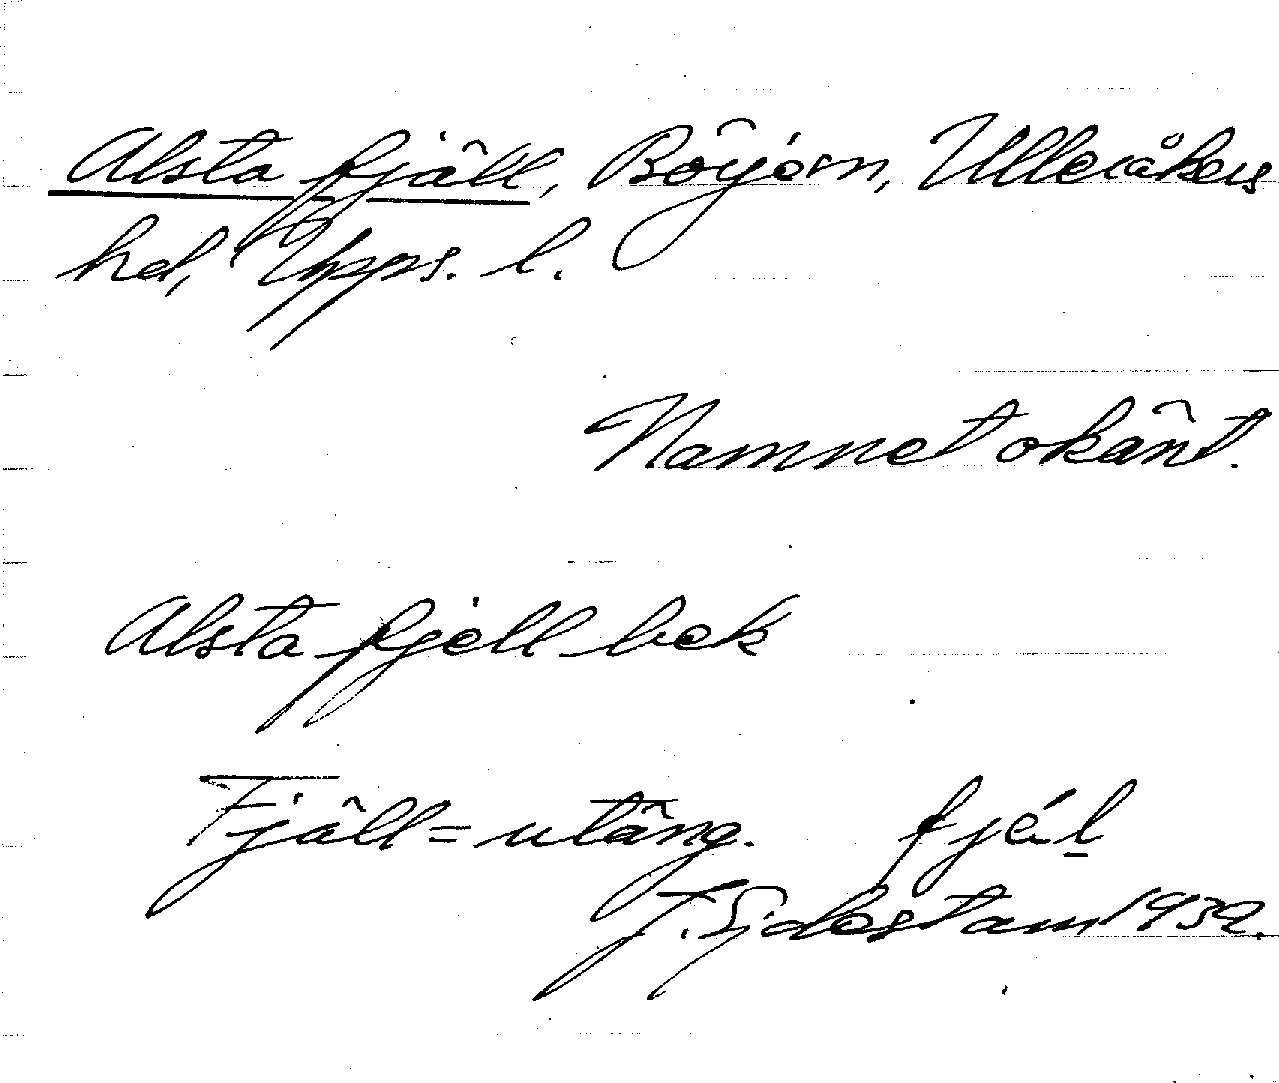 Alsta fjäll, Börjörn, Ulleråkers
hd, Upps. l.
Namnet okänt.
Alsta fjell bek
Fjäll = utäng. fjél
J. Sjdestam 1932.